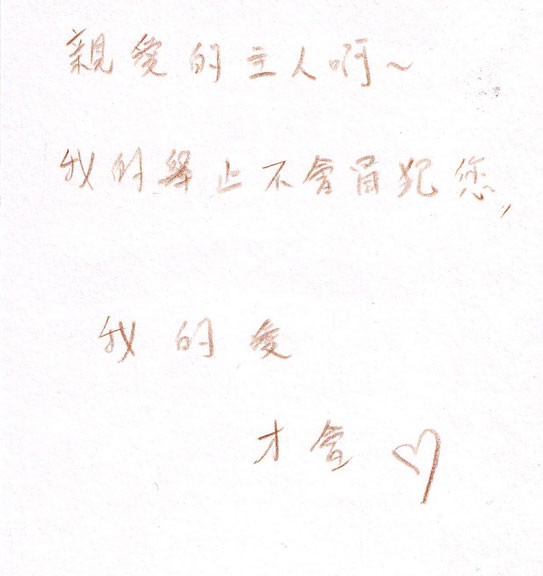 親愛的主人啊~
我的舉止不會冒犯您,
我的愛
才會♡